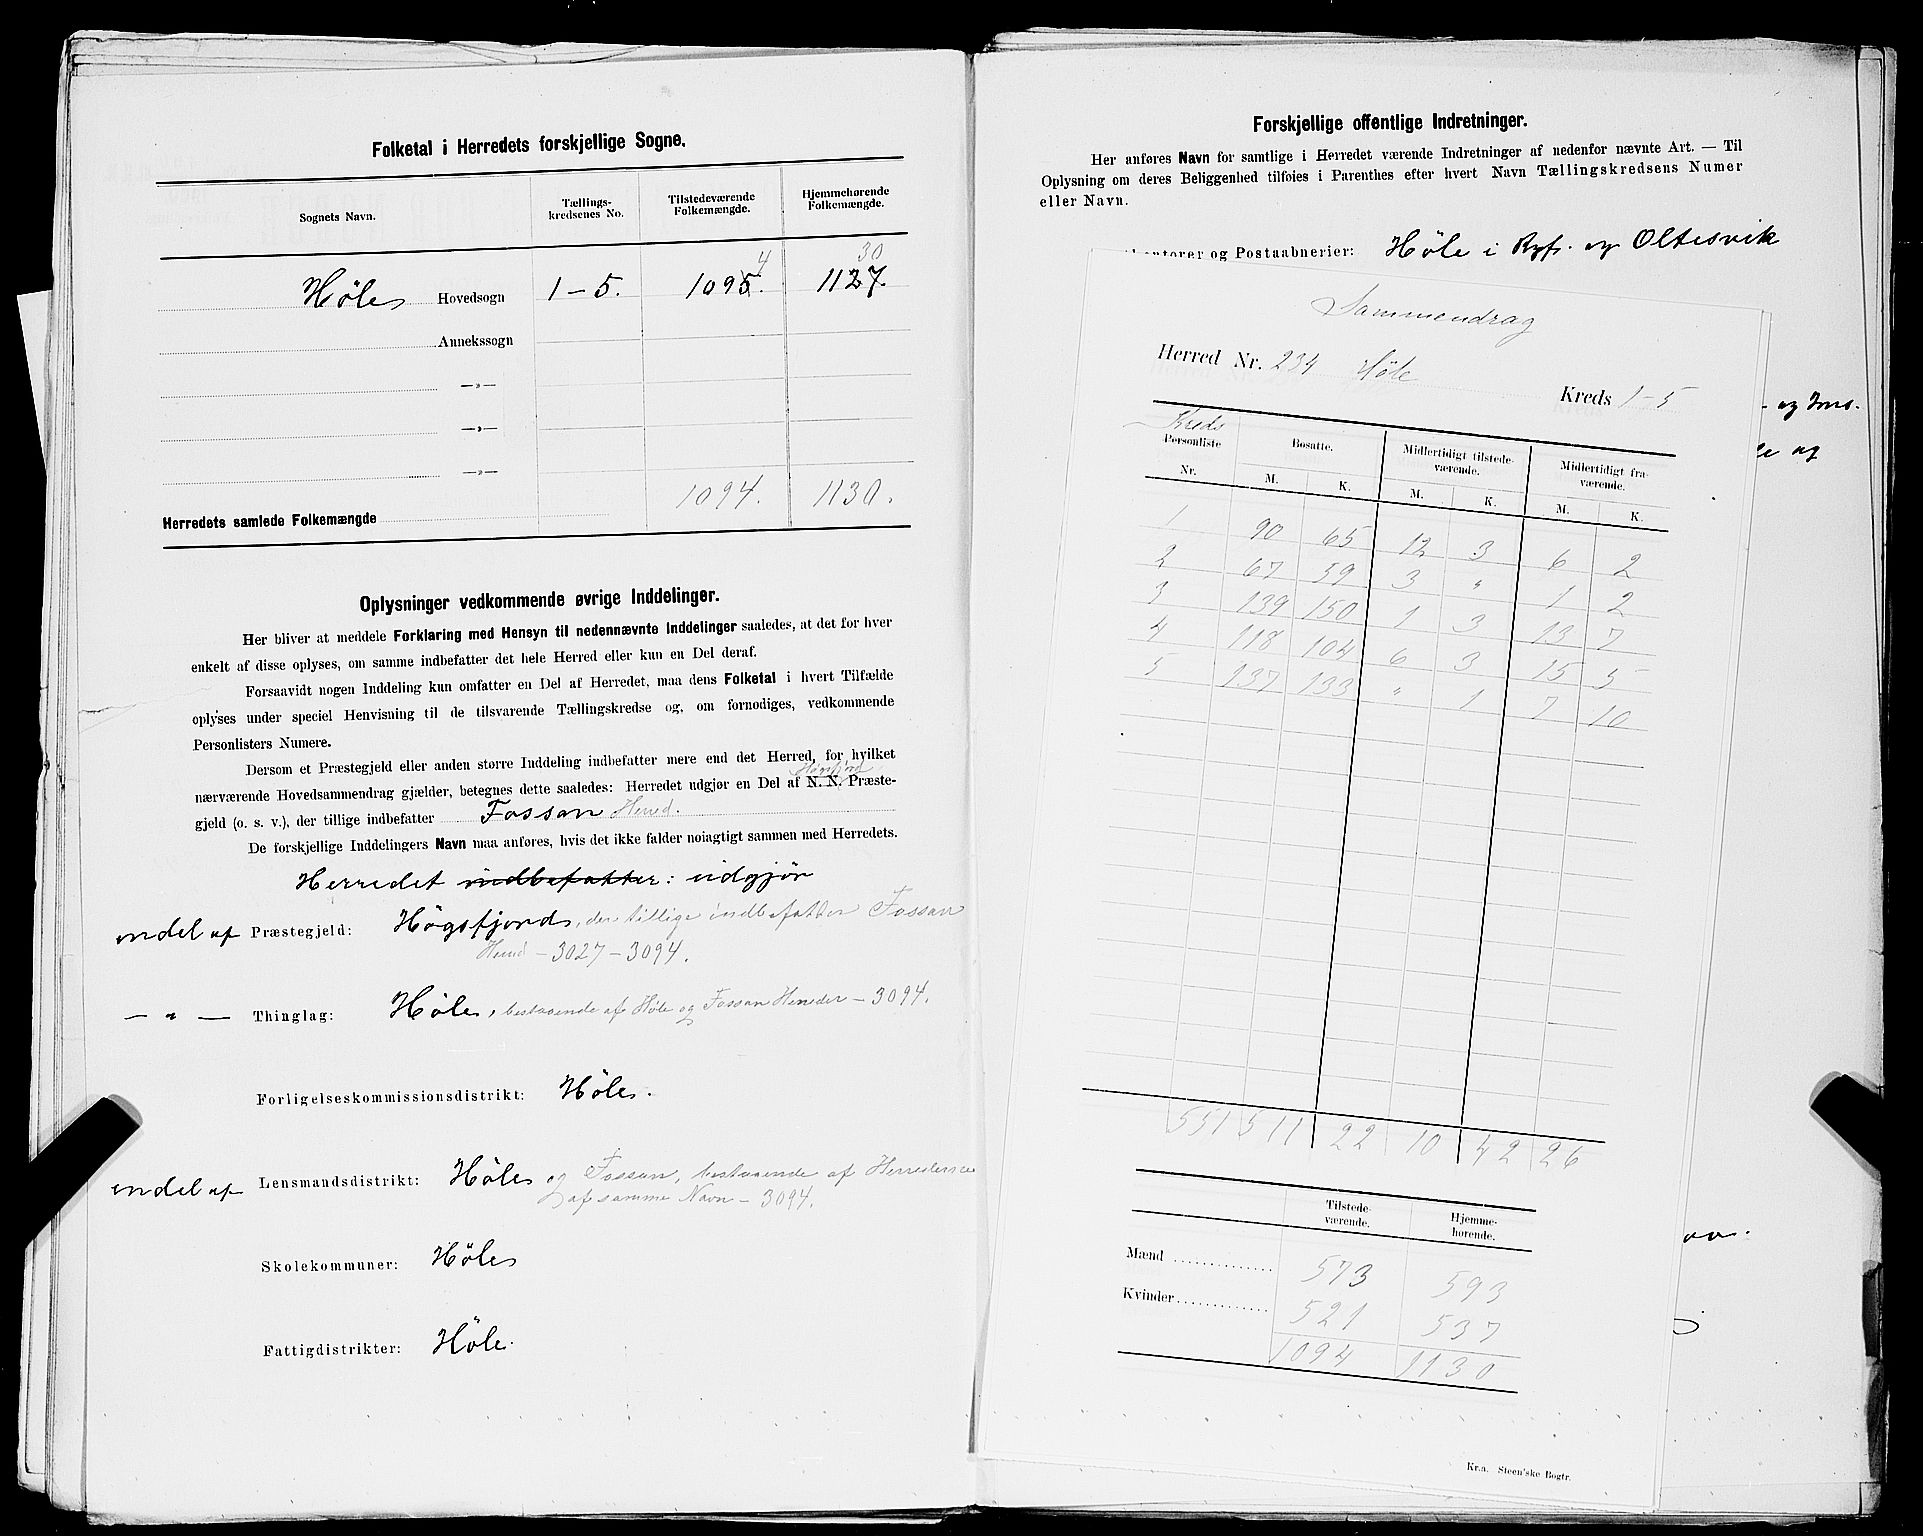 Folketal i Herredets forskjellige Sogne.
Sognets Navn. Tællings-kredsenes No. Tilstedeværende Folkemængde. Hjemmehørende Folkemængde.
4 30
Höle Hovedsogn 1-5. 1095. 1127.
Annekssogn
—»—
—»—
—»—
Herredets samlede Folkemængde 1094. 1130.
Oplysninger vedkommende øvrige Inddelinger.
Her bliver at meddele Forklaring med Hensyn til nedennævnte Inddelinger saaledes, at det for hver
enkelt af disse oplyses, om samme indbefatter det hele Herred eller kun en Del deraf.
Forsaavidt nogen Inddeling kun omfatter en Del af Herredet, maa dens Folketal i hvert Tilfælde
oplyses under speciel Henvisning til de tilsvarende Tællingskredse og, om fornødiges, vedkommende
Personlisters Numere.
Dersom et Præstegjeld eller anden større Inddeling indbefatter mere end det Herred, for hvilket
Høgsfjord
nærværende Hovedsammendrag gjælder, betegnes dette saaledes: Herredet udgjør en Del af N. N. Præste-
gjeld (o. s. v.), der tillige indbefatter Fossan Herred.
De forskjellige Inddelingers Navn maa anføres, hvis det ikke falder nøiagtigt sammen med Herredets.
Herredet indbefatter: udgjör
endel af Præstegjeld: Högsfjord, der tillige indbefatter Fossan
Herred - 3027 - 3094.
— " — Thinglag: Höle, bestaaende af Höle og Fossan Herreder - 3094.
Forligelseskommissionsdistrikt: Höle.
endel af Lensmandsdistrikt: Höle og Fossan, bestaaende af Herrederne
af samme Navn - 3094.
Skolekommuner: Höle
Fattigdistrikter: Höle.
Forskjellige offentlige Indretninger.
Her anføres Navn for samtlige i Herredet værende Indretninger af nedenfor nævnte Art. — Til
Oplysning om deres Beliggenhed tilføies i Parenthes efter hvert Navn Tællingskredsens Numer
eller Navn.
og Postaabnerier: Höle i Ryf. og Oltesvik
Sammendrag
Herred Nr. 234 Höle Kreds 1-5
Kreds
Personliste Nr. Bosatte. Midlertidigt tilstede-værende. Midlertidigt fra-værende.
M. K. M. K. M. K.
1 90 65 12 3 6 2
2 67 59 3 " 1 2
3 139 150 1 3 13 7
4 118 104 6 3 15 5
5 137 133 " 1 7 10
551 511 22 10 42 26
Tilstede-værende. Hjemme-hørende.
Mænd 573 593
Kvinder 521 537
1094 1130
Kr.a. Steen'ske Bogtr.